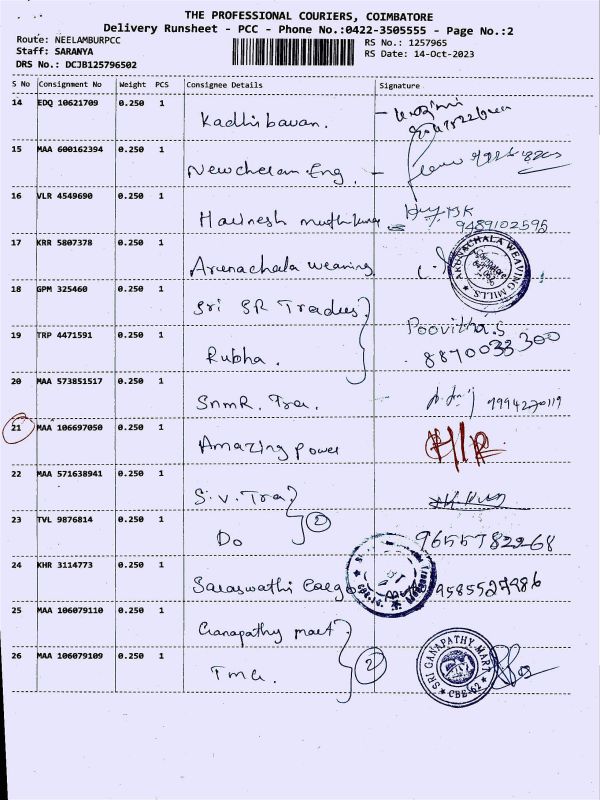 THE PROFESSIONAL COURIERS, COIMBATORE
Delivery Runsheet - PCC - Phone No.:0422-3505555 - Page No.:2
Route: NEELAMBURPCC
RS No.: 1257965
Staff: SARANYA
RS Date: 14-Oct-2023
DRS No.: DCJB125796502
S No Consignment No Weight PCS Consignee Details Signature
14 EDQ 10621709 0.250 1 Kadhi bavan.
15 MAA 600162394 0.250 1 Newchelam Eng.
16 VLR 4549690 0.250 1 Harinesh 9489102595
17 KRR 5807378 0.250 1 Arunachala weaving
ARUNACHALA WEAVING MILLS
18 GPM 325460 0.250 1 Sri SR Trades
Poovitha.S
19 TRP 4471591 0.250 1 Rubha. 8870033300
20 MAA 573851517 0.250 1 SnmR. Tra. 9994270119
21 MAA 106697050 0.250 1 Amazing power
22 MAA 571638941 0.250 1 S.V. Tra
23 TVL 9876814 0.250 1 Do 2 9655782268
24 KHR 3114773 0.250 1 Saraswathi Cargo 9585527986
25 MAA 106079110 0.250 1 Ganapathy mart
26 MAA 106079109 0.250 1 Tma. 2
SRI GANAPATHY MART CBE-62